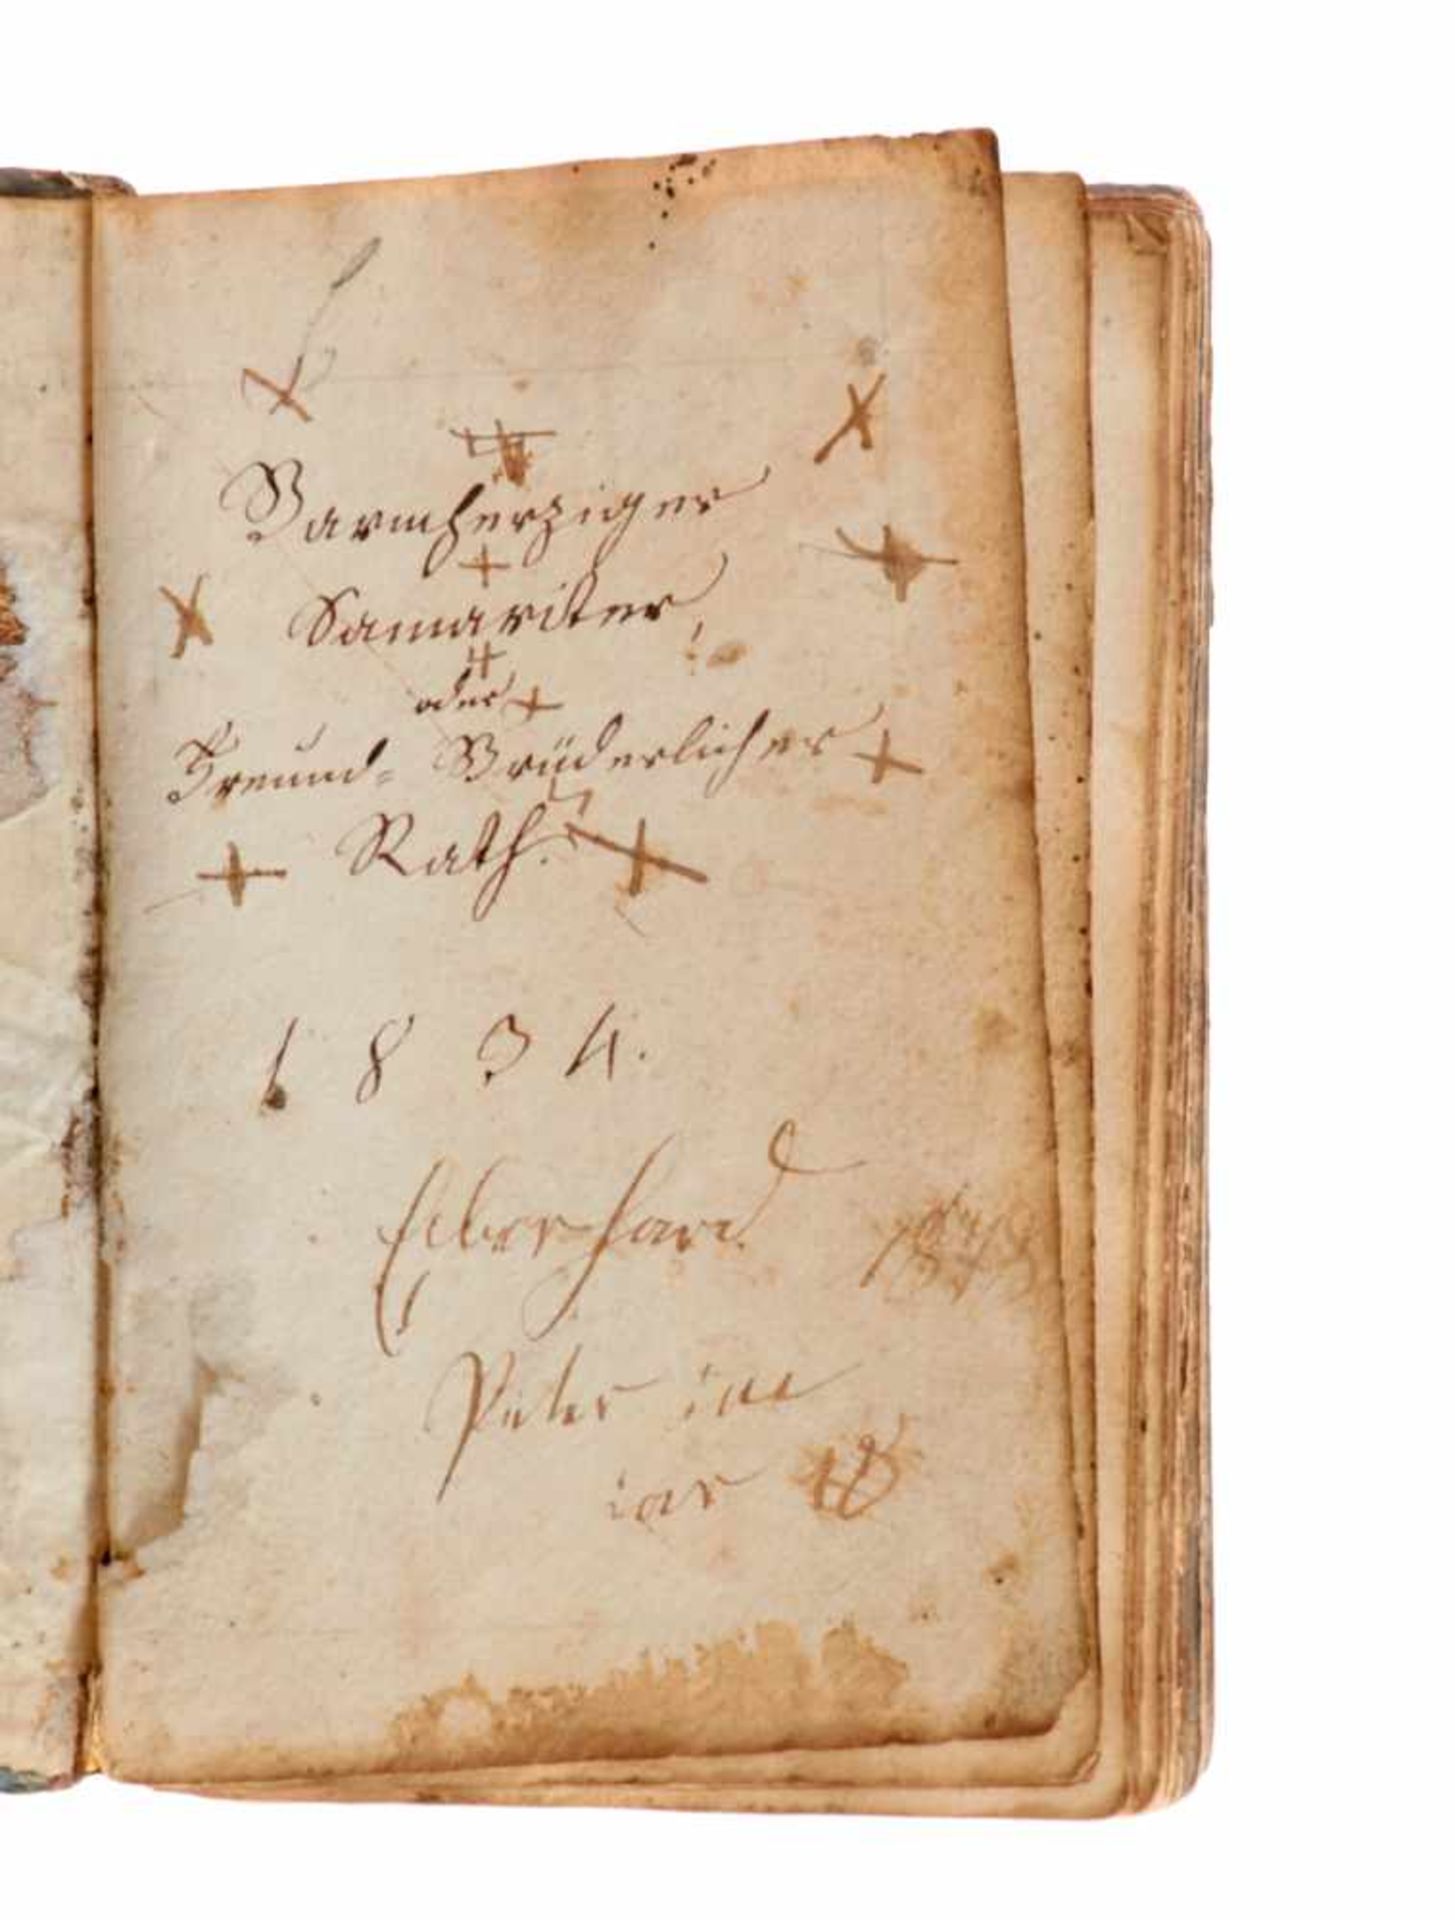 Barmherziger
Samariter!
oder
Freund= Brüderlicher
Rath.
1834.
Eberhard
Peter im
iar